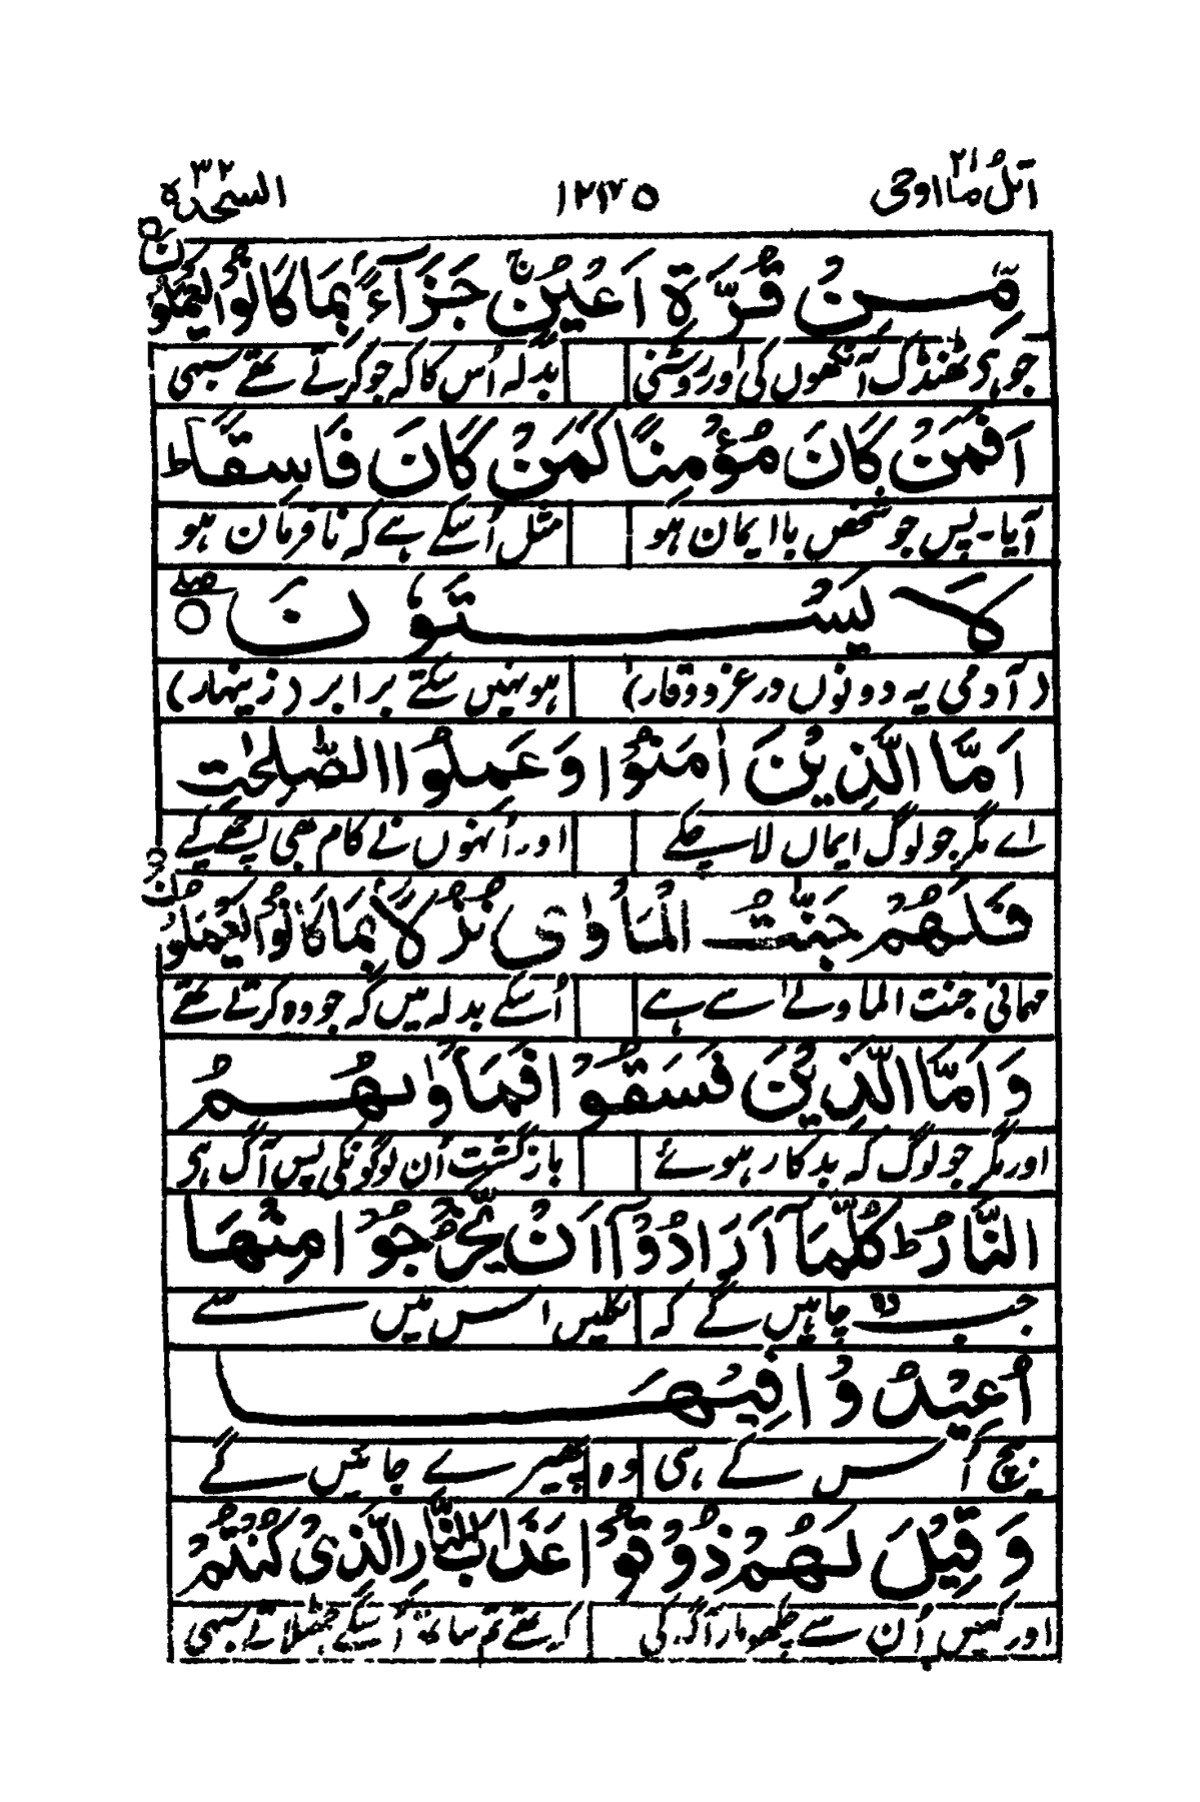 اتل ما اوحی ۲۱ ۱۲۷۵ السجدة ۳۲
مِّنْ قُرَّةِ اَعْیُنٍ ۚ جَزَآءًۢ بِمَا كَانُوْا یَعْمَلُوْنَ
جو ہی ٹھنڈک آنکھوں کی اور روشنی بدلہ اُس کا کہ جو کرتے تھے سبھی
اَفَمَنْ كَانَ مُؤْمِنًا كَمَنْ كَانَ فَاسِقًا ؕ
آیا۔ پس جو شخص با ایمان ہو مثل اُسکے ہے کہ نافرمان ہو
لَا یَسْتَوٗنَ ۝
(آدمی یہ دونوں در عز و وقار) ہو نہیں سکتے برابر (زینہار)
اَمَّا الَّذِیْنَ اٰمَنُوْا وَ عَمِلُوا الصّٰلِحٰتِ
اے مگر جو لوگ ایماں لا چکے اور اُنہوں نے کام بھی اچھے کیے
فَلَهُمْ جَنّٰتُ الْمَاْوٰی نُزُلًۢا بِمَا كَانُوْا یَعْمَلُوْنَ
مہمانی جنت الماوےٰ سے ہے اُسکے بدلہ میں کہ جو وہ کرتے تھے
وَ اَمَّا الَّذِیْنَ فَسَقُوْا فَمَاْوٰىهُمُ
اور مگر جو لوگ کہ بدکار ہوئے بازگشت اُن لوگونکی پس آگ ہی
النَّارُ ؕ كُلَّمَاۤ اَرَادُوْۤا اَنْ یَّخْرُجُوْا مِنْهَاۤ
جب وہ چاہیں گے کہ نکلیں اس میں سے
اُعِیْدُوْا فِیْهَا
بیچ اُس کے ہی وہ پھیرے جائیں گے
وَ قِیْلَ لَهُمْ ذُوْقُوْا عَذَابَ النَّارِ الَّذِیْ كُنْتُمْ
اور کہیں اُن سے چکھو مار آگ کی کہ تھے تم ساتھ اُسکے جھٹلاتے سبھی